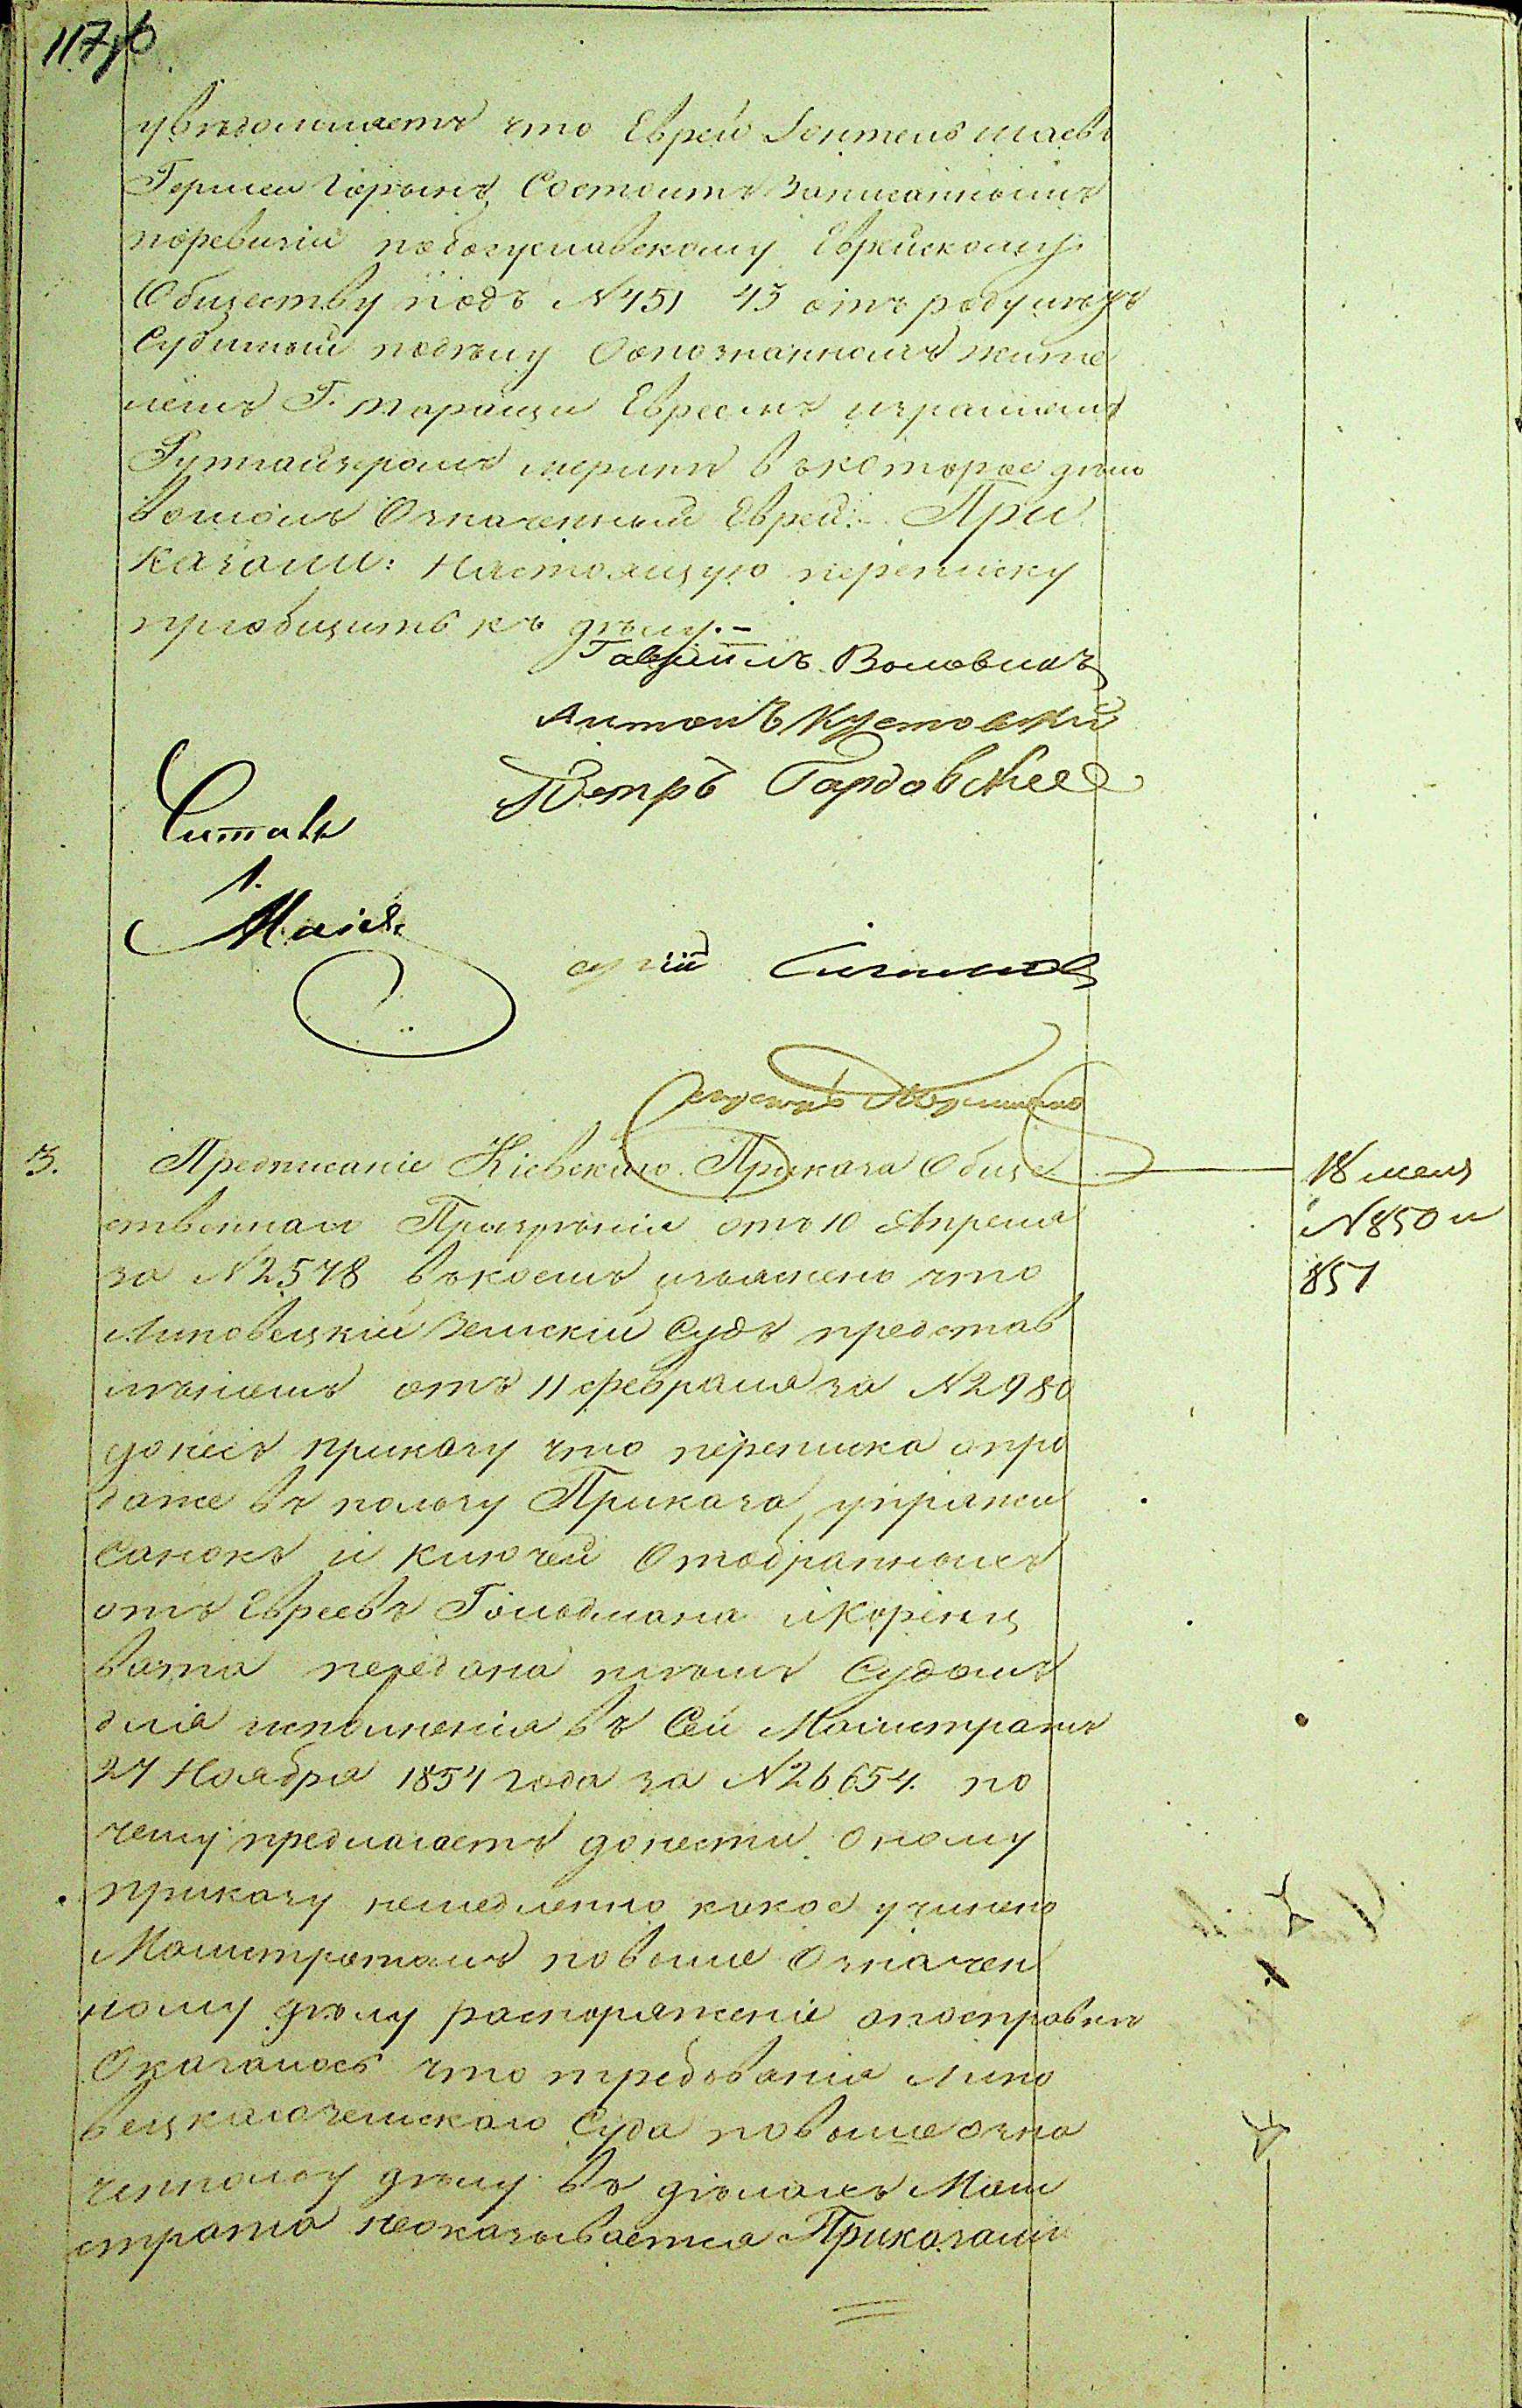 117об
увѣдомляетъ что Еврей
Гершки Состоитъ записаннымъ
поревизіи побогуславскому Еврейскому
Обществу подъ №451 43 отъроду лѣтъ
Судимый подѣлу
лемъ Г. Таращи Евреемъ израилемъ
въкоторое дѣло
вошолъ Означенный Еврей. При
казали: Настоящую переписку
пріобщить къ дѣлу.
Гавріилъ
Антонъ
Петръ
Читалъ
3. Предписаніе Кіевскаго Приказа Обще
ственнаго Призрѣнія отъ 10 Апреля
за №2578 въкоемъ изъяснено что
Липовецкій Земскій Судъ представ
лѣніемъ отъ 11 февраля за №2980
донесъ приказу что переписка опро
даже въ пользу Приказа упряжи
санокъ и ключей Отобранныхъ
отъ Евреевъ Гольдмана
передана Судомъ
для исполненія въ Сей Магистратъ
27 Ноября 1854 года за №26654. по
чему предлагаетъ донести оному
приказу немедленно какое учинено
Магистратомъ повыше Означен
ному дѣлу распоряженіе апосправкѣ
Оказалось что требованія Липо
вецкагоземскаго Суда повышеозна
ченному дѣлу въ дѣлахъ Маги
страта неоказывается Приказали
18 мая
№850 и
851